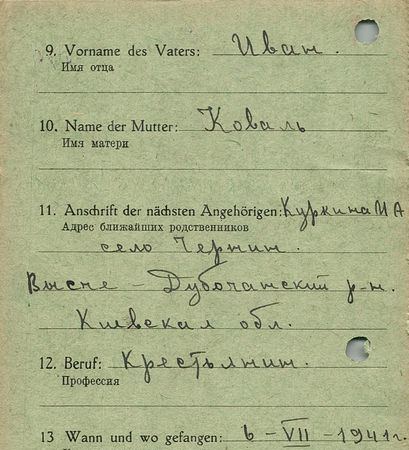 9. Vorname des Vaters: Иван.
Имя отца
10. Name der Mutter: Коваль
Имя матери
11. Anschrift der nächsten Angehörigen: Куркина И А
Адрес ближайших родственников
село Чернин.
Высче - Дубочанский р-н.
Киевская обл.
12. Beruf: Крестьянин.
Профессия
13 Wann und wo gefangen: 6 - VII - 1941 г.